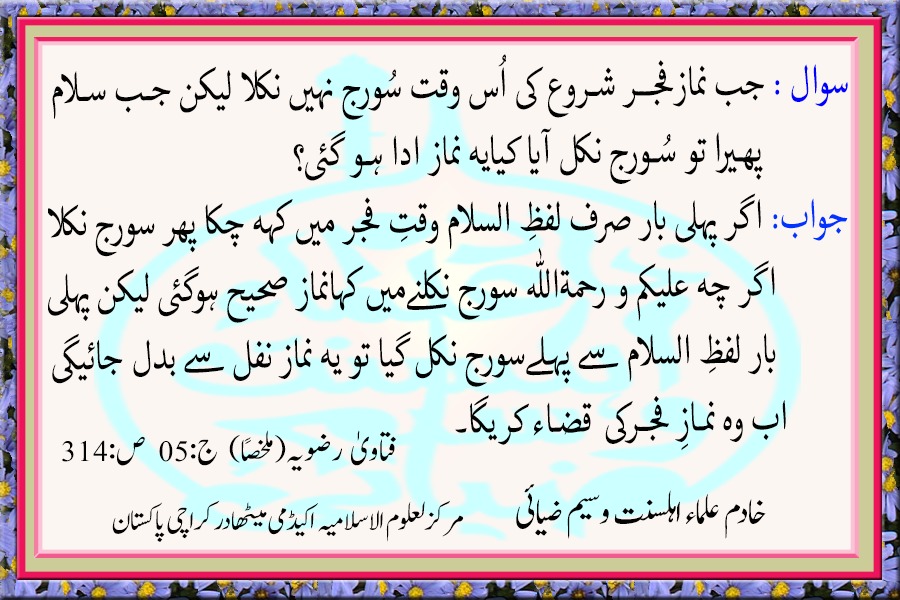 سوال : جب نماز فجر شروع کی اُس وقت سُورج نہیں نکلا لیکن جب سلام
پھیرا تو سُورج نکل آیا کیا یہ نماز ادا ہو گئی؟
جواب: اگر پہلی بار صرف لفظِ السلام وقتِ فجر میں کہہ چکا پھر سورج نکلا
اگر چہ علیکم و رحمۃاللہ سورج نکلنے میں کہا نماز صحیح ہوگئی لیکن پہلی
بار لفظِ السلام سے پہلے سورج نکل گیا تو یہ نماز نفل سے بدل جائیگی
اب وہ نمازِ فجر کی قضاء کریگا۔
فتاویٰ رضویہ (ملخصًا) ج:05 ص:314
خادم علماء اہلسنت وسیم ضیائی مرکز لعلوم الاسلامیہ اکیڈمی میٹھادر کراچی پاکستان